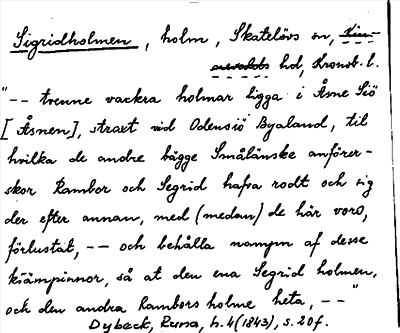 Sigridholmen, holm, Skatelövs sn,
hd, Kronob. l.
"-- trenne vackra holmar ligga i Åsne Siö
[Åsnen], straxt vid Odensiö Byaland, til
hvilka de andre bägge Småländske anförer-
skor Rambor och Segrid hafva rodt och sig
der efter annan, med (medan) de här voro,
förlustat, -- och behålla namnen af desse
kiämpinnor, så at den ena Segrid holmen,
och den andra Rambors holme heta, -- "
Dybeck, Runa, h. 4 (1843), s. 20 f.